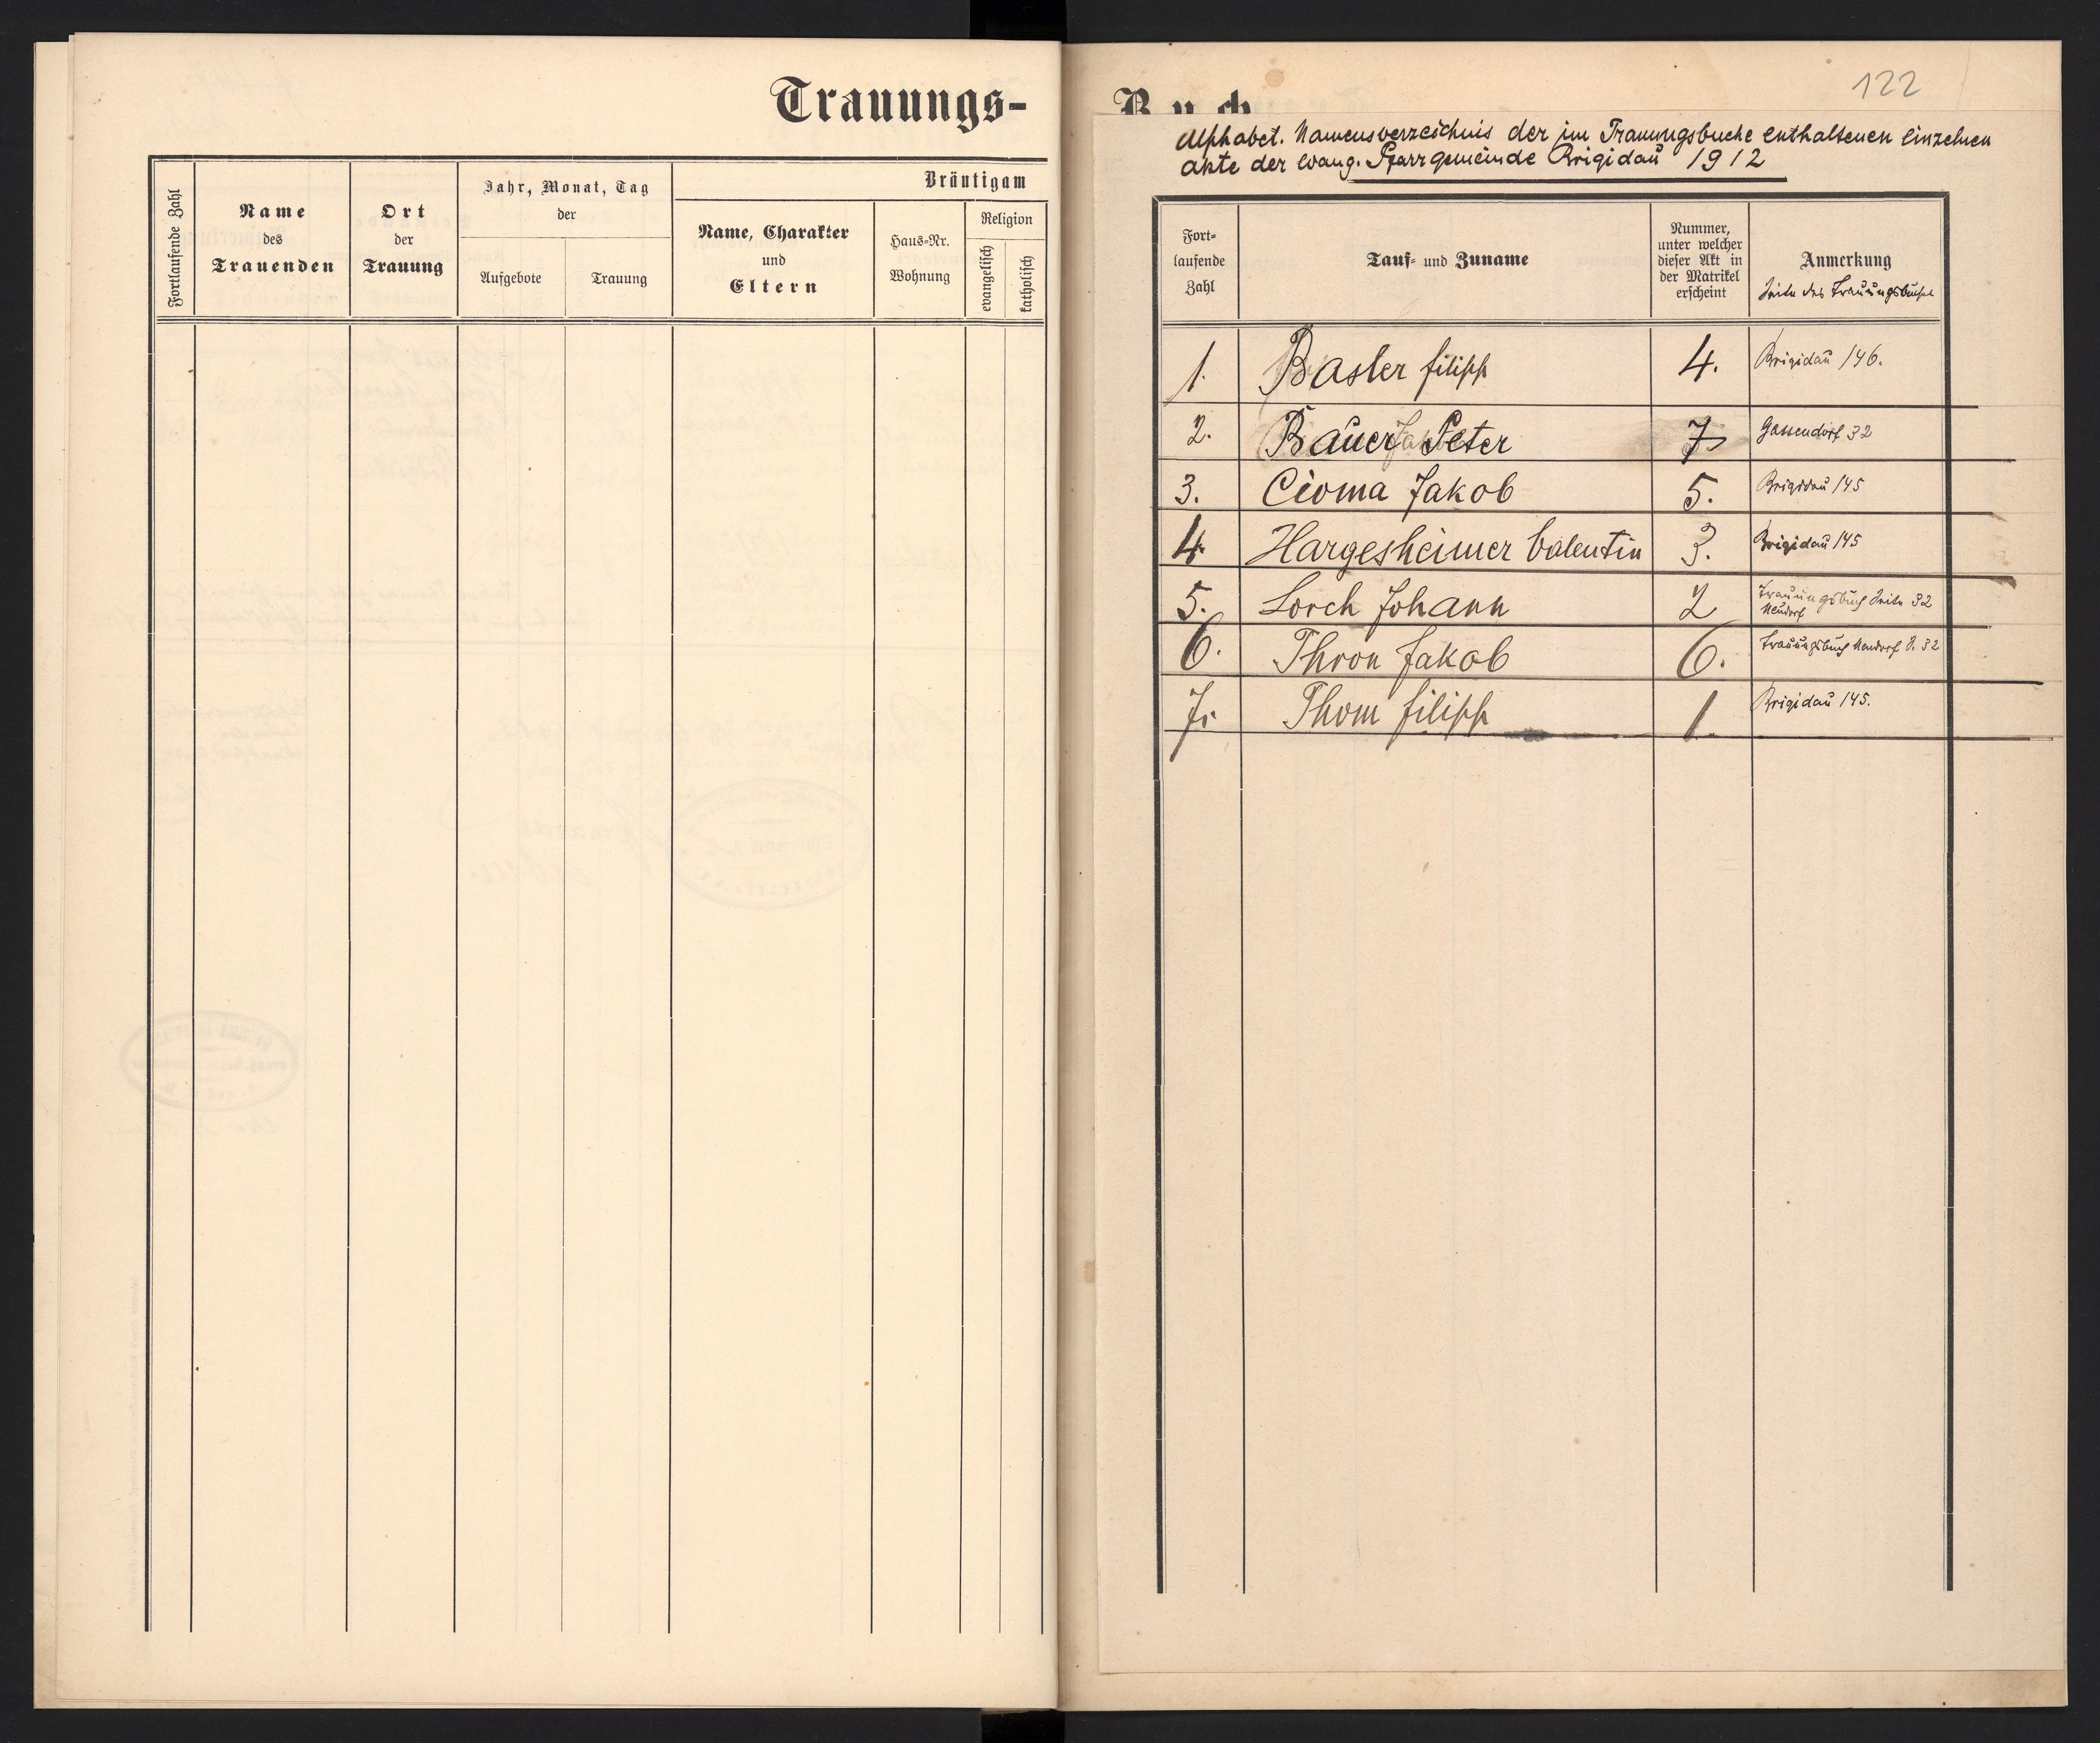 Trauungs-
Fortlaufende Zahl
Name
des
Trauenden
Ort
der
Trauung
Jahr, Monat, Tag
der
Aufgebote
Trauung
Bräutigam
Name, Charakter
und
Eltern
Haus-Nr.
Wohnung
Religion
evangelisch
katholisch
122
Buch
Alphabet. Namensverzeichnis der im Trauungsbuche enthaltenen einzelnen
Akte der evang. Pfarrgemeinde Brigidau 1912
Fort-
laufende
Zahl
Tauf- und Zuname
Nummer,
unter welcher
dieser Akt in
der Matrikel
erscheint
Anmerkung
Seite des Trauungsbuches
1. Basler Filipp 4. Brigidau 146.
2. Bauer Peter 7 Gassendorf 32
3. Cioma Jakob 5. Brigidau 145
4. Hargesheimer Valentin 3. Brigidau 145
5. Lorch Johann 2 Trauungsbuch Seite 32
Neudorf
6. Thron Jakob 6. Trauungsbuch Neudorf S. 32
7. Thom Filipp 1. Brigidau 145.